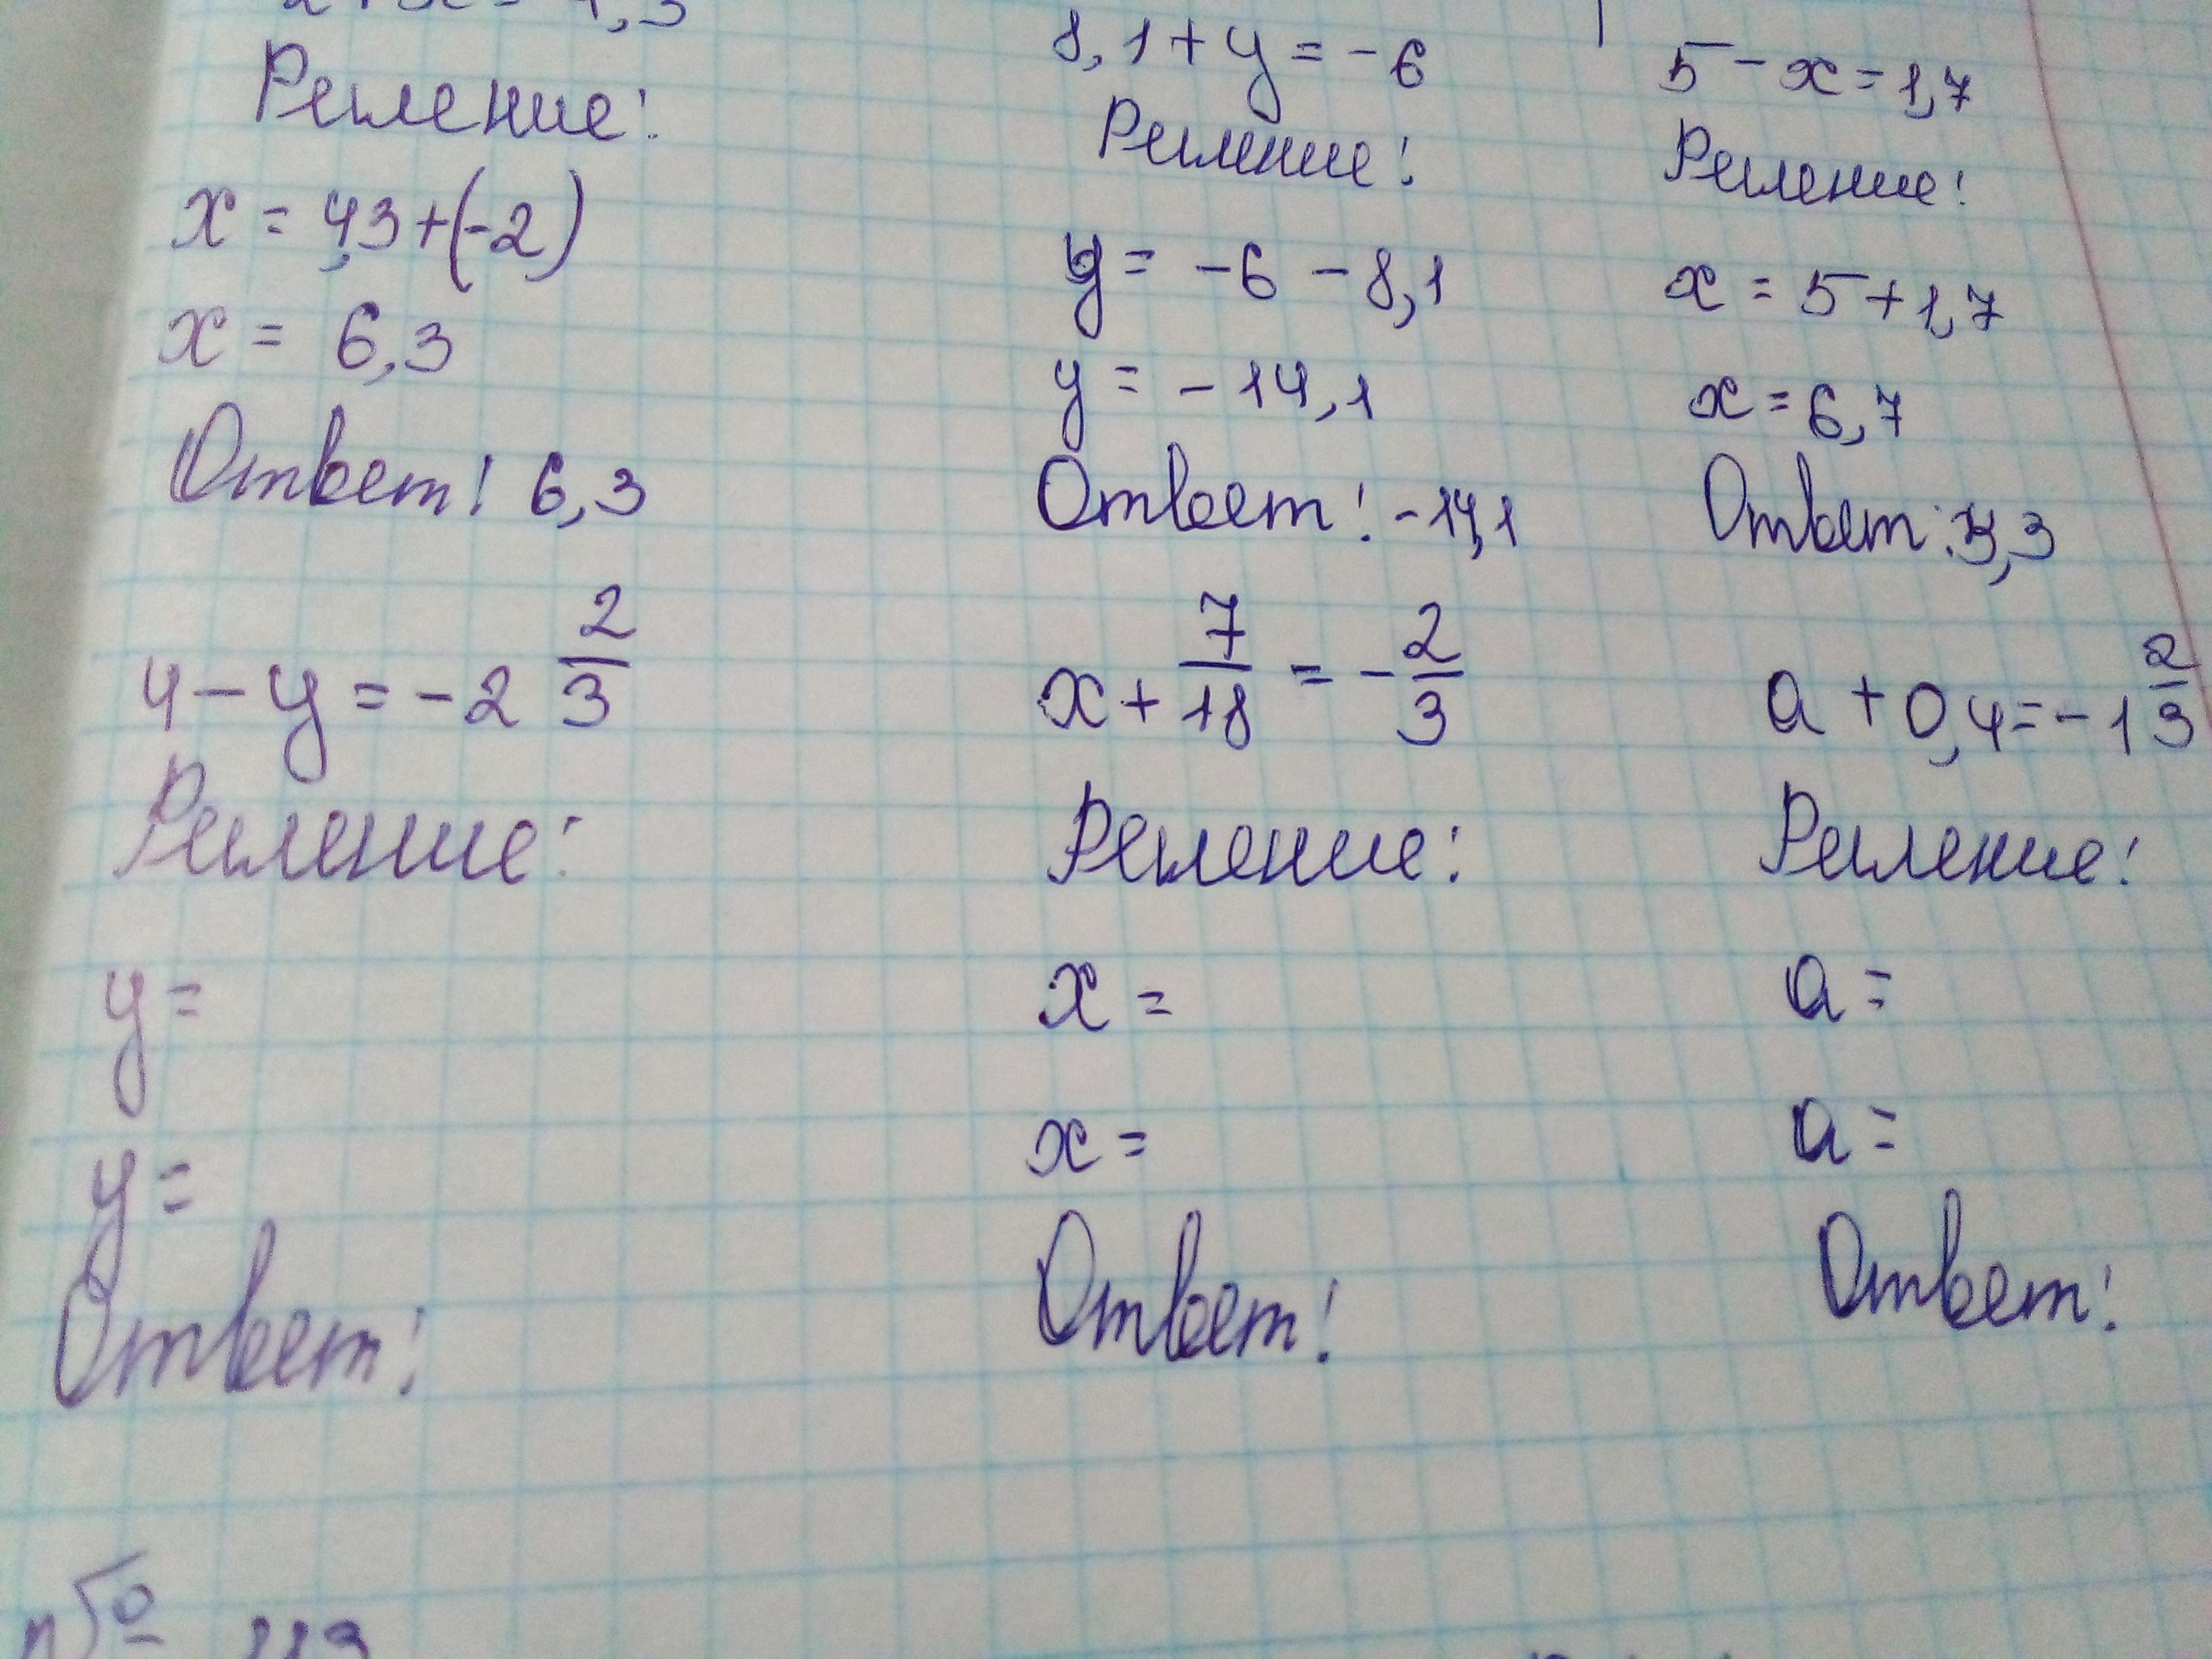 2+x=4,3
Решение:
x = 4,3+(-2)
x = 6,3
Ответ: 6,3
8,1+y=-6
Решение:
y = -6 -8,1
y = -14,1
Ответ: -14,1
5-x=1,7
Решение:
x = 5+1,7
x = 6,7
Ответ: 3,3
4-y=-2 2/3
Решение:
y=
y=
Ответ:
x+ 7/18 = - 2/3
Решение:
x =
x =
Ответ:
a +0,4=-1 2/3
Решение:
a =
a =
Ответ: